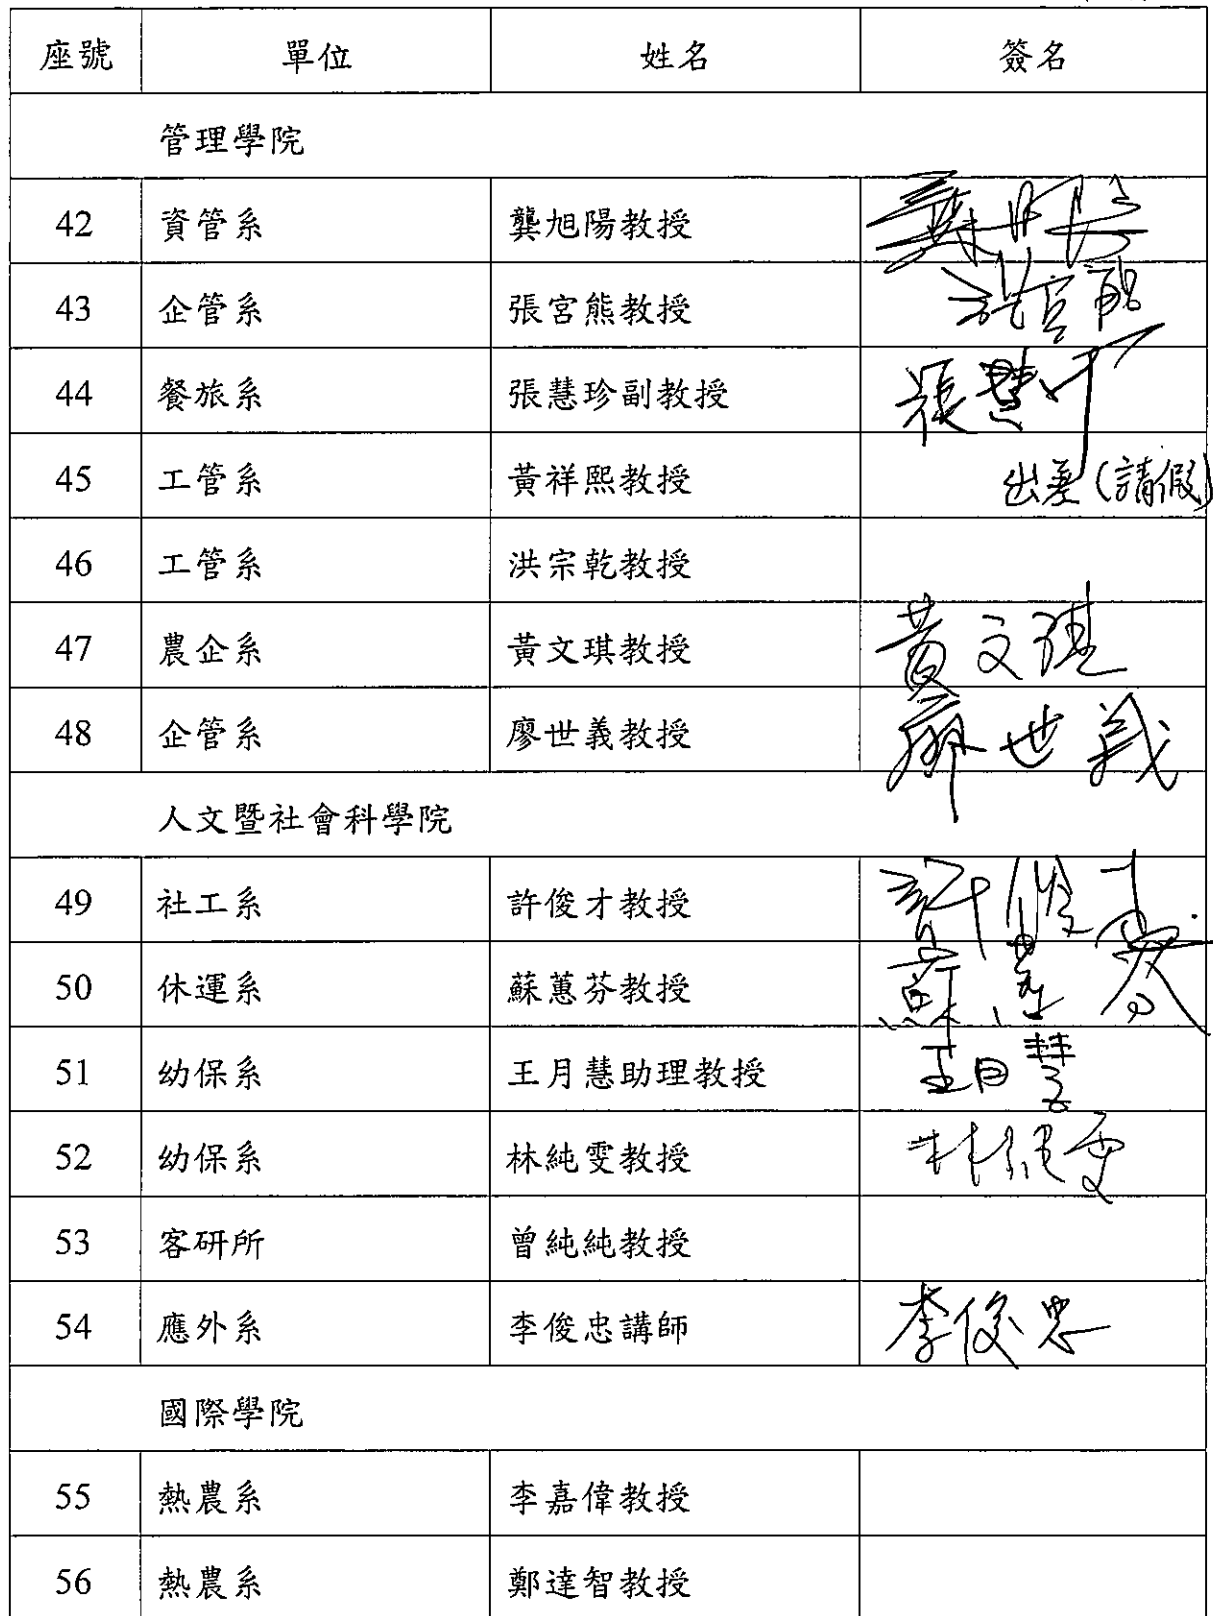 座號 單位 姓名 簽名
管理學院
42 資管系 龔旭陽教授 龔旭陽
43 企管系 張宮熊教授 張宮熊
44 餐旅系 張慧珍副教授 張慧珍
45 工管系 黃祥熙教授 出差(請假)
46 工管系 洪宗乾教授
47 農企系 黃文琪教授 黃文琪
48 企管系 廖世義教授 廖世義
人文暨社會科學院
49 社工系 許俊才教授 許俊才
50 休運系 蘇蕙芬教授 蘇蕙芬
51 幼保系 王月慧助理教授 王月慧
52 幼保系 林純雯教授 林純雯
53 客研所 曾純純教授
54 應外系 李俊忠講師 李俊忠
國際學院
55 熱農系 李嘉偉教授
56 熱農系 鄭達智教授